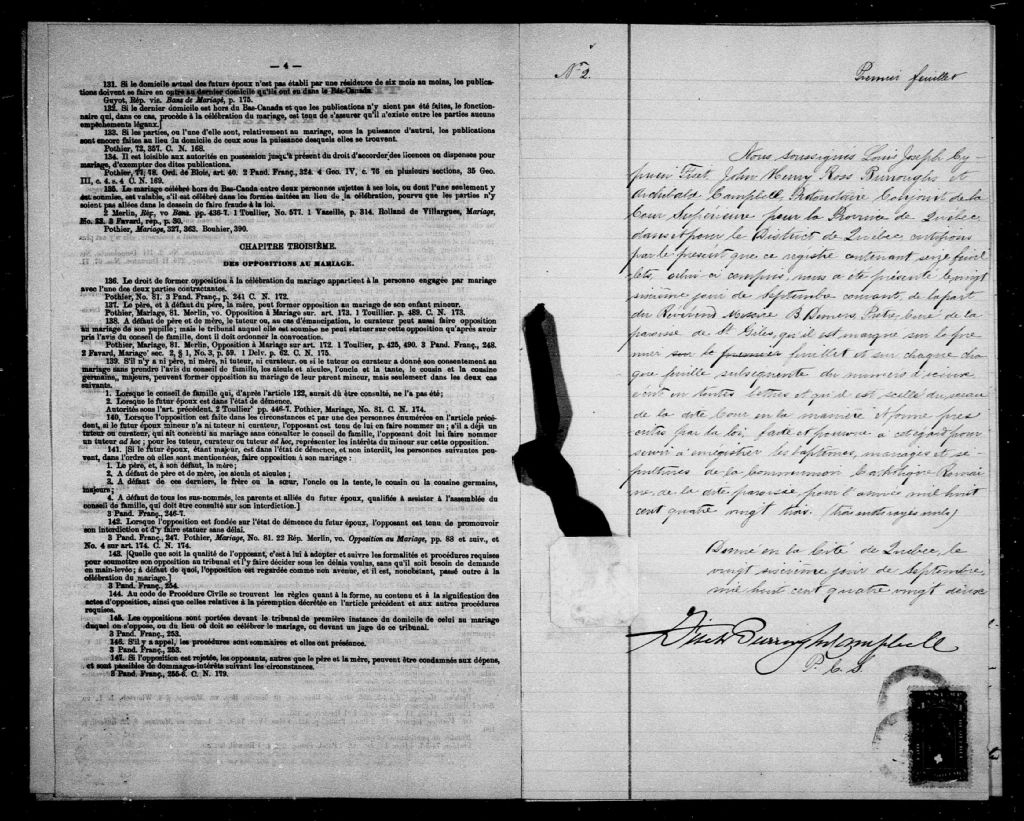 — 4 —
131. Si le domicile actuel des futurs époux n'est pas établi par une résidence de six mois au moins, les publica-
tions doivent se faire en outre au dernier domicile qu'ils ont eu dans le Bas-Canada.
Guyot, Rép. vis. Bans de Mariage, p. 175.
132. Si le dernier domicile est hors du Bas-Canada et que les publications n'y aient pas été faites, le fonction-
naire qui, dans ce cas, procède à la célébration du mariage, est tenu de s'assurer qu'il n'existe entre les parties aucuns
empêchements légaux.]
133. Si les parties, ou l'une d'elle sont, relativement au mariage, sous la puissance d'autrui, les publications
sont encore faites au lieu du domicile de ceux sous la puissance desquels elles se trouvent.
Pothier, 72, 357. C. N. 168.
134. Il est loisible aux autorités en possession jusqu'à présent du droit d'accorder des licences ou dispenses pour
mariage, d'exempter des dites publications.
Pothier, 77, 78. Ord. de Blois, art. 40. 2 Pand. Franç., 324. 4 Geo. IV, c. 75 en plusieurs sections, 35 Geo.
III, c. 4. s. 4 C. N. 169.
135. Le mariage célébré hors du Bas-Canda entre deux personnes sujettes à ses lois, ou dont l'une seulement y
est soumise, est valable, s'il est célébré dans les formes usitées au lieu de la célébration, pourvu que les parties n'y
soient pas allées dans le dessein de faire fraude à la loi.
2 Merlin, Rép, vo Bans. pp. 436-7. 1 Toullier, No. 577. 1 Vazeille, p. 314. Rolland de Villargues, Mariage,
No. 23. 3 Favard, rép., p. 30.
Pothier, Mariage, 327, 363. Bouhier, 390.
CHAPITRE TROISIÈME.
DES OPPOSITIONS AU MARIAGE.
136. Le droit de former opposition à la célébration du mariage appartient à la personne engagée par mariage
avec l'une des deux parties contractantes.
Pothier, No. 81. 3 Pand. Franç., p. 241 C. N. 172.
137. Le père, et à défaut du père, la mère, peut former opposition au mariage de son enfant mineur.
Pothier, Mariage, 81. Merlin, vo. Opposition à Mariage sur art. 173. 1 Touillier p. 489. C. N. 173.
138. A défaut de père et de mère, le tuteur ou, au cas d'émancipation, le curateur peut aussi faire opposition
au mariage de son pupille; mais le tribunal auquel elle est soumise ne peut statuer sur cette opposition qu'après avoir
pris l'avis du conseil de famille, dont il doit ordonner la convocation.
Pothier, Mariage, 81. Merlin, Opposition à Mariage sur art. 172. 1 Toullier, p. 425, 490. 3 Pand. Franç., 248.
2 Favard, Mariage' sec. 2, § 1, No. 3, p. 59. 1 Delv. p. 62. C. N. 175.
139. S'il n'y a ni père, ni mère, ni tuteur, ni curateur, ou si le tuteur ou curateur a donné son consentement au
mariage sans prendre l'avis du conseil de famille, les aïeuls et aïeules, l'oncle et la tante, le cousin et la cousine
germains, majeurs, peuvent former opposition au mariage de leur parent mineur, mais seulement dans les deux cas
suivants.
1. Lorsque le conseil de famille qui, d'après l'article 122, aurait dû être consulté, ne l'a pas été;
2. Lorsque le futur époux est dans l'état de démence.
Autorités sous l'art. précédent. 2 Toullier' pp. 446-7. Pothier, Mariage, No. 81. C. N. 174.
140. Lorsque l'opposition est faite dans les circonstances et par une des personnes énumérées en l'article précé-
dent, si le futur époux mineur n'a ni tuteur ni curateur, l'opposant est tenu de lui en faire nommer un; s'il a déjà un
tuteur ou curateur, qui ait consenti au mariage sans consulter le conseil de famille, l'opposant doit lui faire nommer
un tuteur ad hoc; pour les tuteur, curateur ou tuteur ad hoc, représenter les intérêts du mineur sur cette opposition.
141. [Si le futur époux, étant majeur, est dans l'état de démence, et non interdit, les personnes suivantes peu-
vent, dans l'ordre où elles sont mentionnées, faire opposition à son mariage :
1. Le père, et, à son défaut, la mère;
2. A défaut de père et de mère, les aïeuls et aïeules;
3. A défaut de ces derniers, le frère ou la sœur, l'oncle ou la tante, le cousin ou la cousine germains,
majeurs;
4. A défaut de tous les sus-nommés, les parents et alliés du futur époux, qualifiés à assister à l'assemblée du
conseil de famille, qui doit être consulté sur son interdiction.]
3 Pand. Franç., 246-7.
142. Lorsque l'opposition est fondée sur l'état de démence du futur époux, l'opposant est tenu de promouvoir
son interdiction et d'y faire statuer sans délai.
3 Pand. Franç., 247. Pothier, Mariage, No. 81. 22 Rép. Merlin, vo. Opposition au Mariage, pp. 88 et suiv., et
No. 4 sur art. 174. C. N. 174.
143. [Quelle que soit la qualité de l'opposant, c'est à lui à adopter et suivre les formalités et procédures requises
pour soumettre son opposition au tribunal et l'y faire décider sous les délais voulus, sans qu'il soit besoin de demande
en main-levée; à défaut de quoi, l'opposition est regardée comme non avenue, et il est, nonobstant, passé outre à la
célébration du mariage.]
3 Pand. Franç., 254.
144. Au code de Procédure Civile se trouvent les règles quant à la forme, au contenu et à la signification des
actes d'opposition, ainsi que celles relatives à la péremption décrétée en l'article précédent et aux autres procédures
requises.
145. Les oppositions sont portées devant le tribunal de première instance du domicile de celui au mariage
duquel on s'oppose, ou du lieu où doit se célébrer le mariage, ou devant un juge de ce tribunal.
3 Pand. Franç., 253.
146. S'il y a appel, les procédures sont sommaires et elles ont préséance.
3 Pand. Franç., 253.
147. Si l'opposition est rejetée, les opposants, autres que le père et la mère, peuvent être condamnés aux dépens,
et sont passibles de dommages-intérêts suivant les circonstances.
3 Pand. Franç., 255-6. C. N. 179.
No 2.
Premier feuillet
Nous soussignés Louis Joseph Cy-
prien Fiset, John Henry Ross Burroughs et
Archibald Campbell, Protonotaire Conjoint de la
Cour Supérieure pour la Province de Québec,
dans et pour le District de Québec, certifions
par le présent que ce registre contenant seize feuil
lets, celui ci compris, nous a été présenté le vingt
sixième jour de Septembre courant, de la part
du Révérend Messire B. Bernier, Ptre, Curé de la
paroisse de St Giles, qu'il est marqué sur le pre
mier sur le premier feuillet et sur chaque cha
que feuille subséquente du numéro d'iceux
écrit en toutes lettres et qu'il est scellé du sceau
de la dite Cour en la manière et forme pres
crites par la loi, faite et pourvue à cet égard pour
servir à enregistrer les baptêmes, mariages et sé-
pultures de la Communion Catholique Romai-
ne, de la dite paroisse, pour l'année mil huit
cent quatre vingt trois. (trois mots rayés nuls)
Donné en la Cité de Québec, le
vingt sixième jour de Septembre,
mil huit cent quatre vingt deux
Fiset Burroughs Campbell
P. C. S.